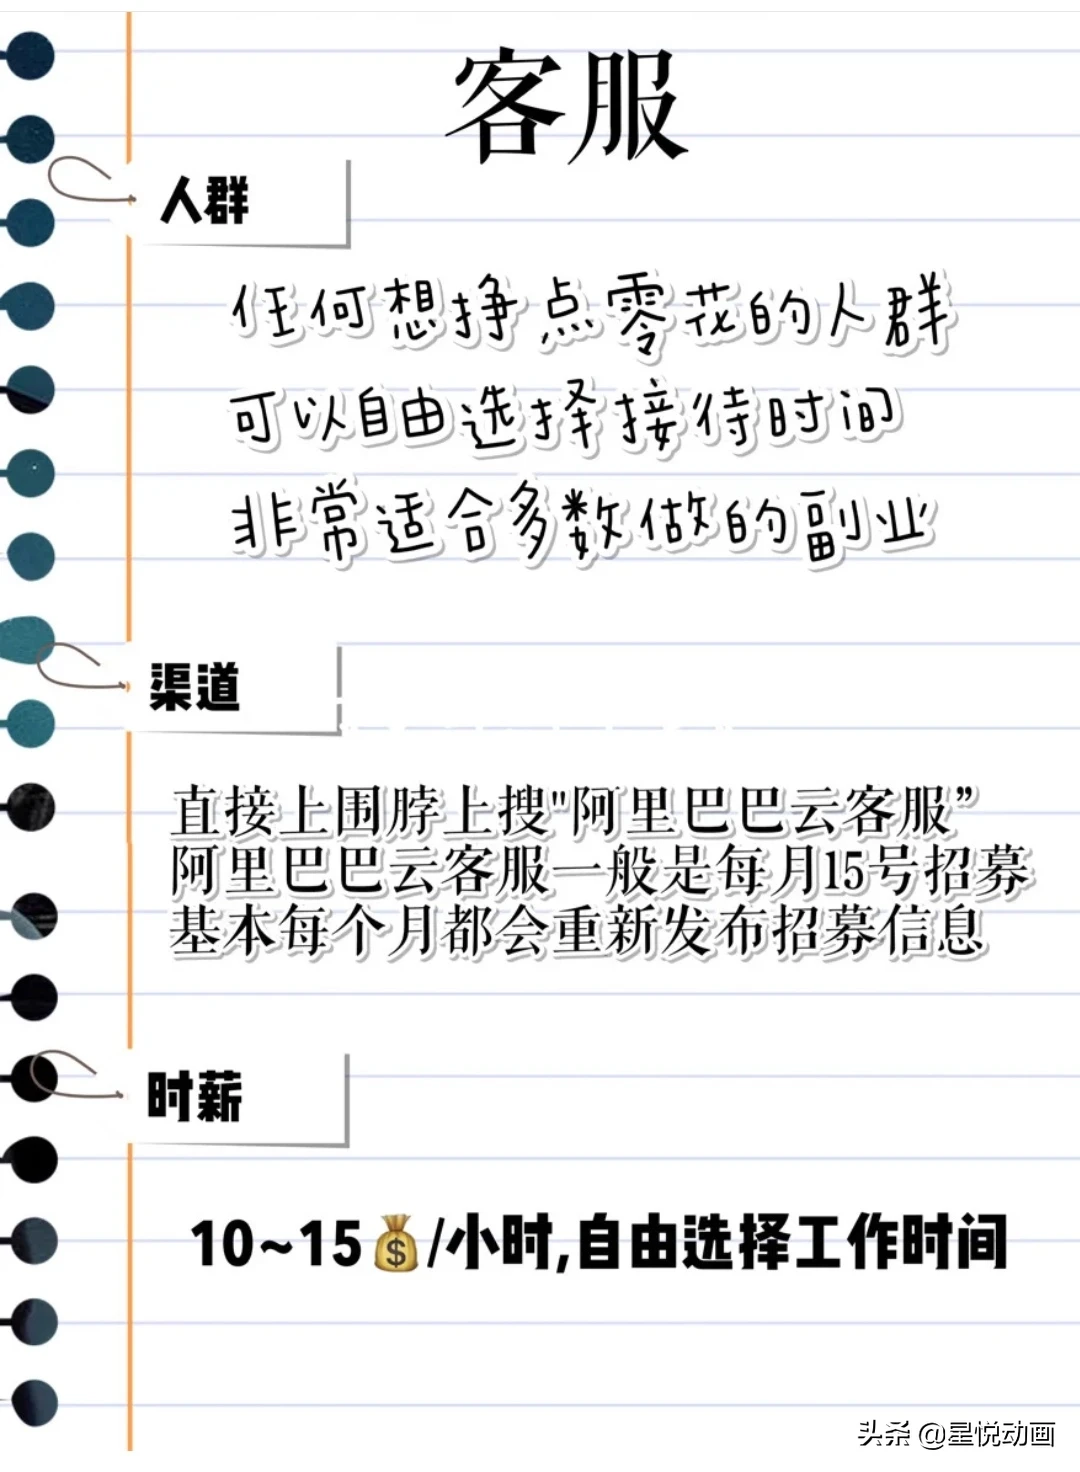 客服
人群
任何想挣点零花的人群
可以自由选择接待时间
非常适合多数做的副业
渠道
直接上围脖上搜"阿里巴巴云客服”
阿里巴巴云客服一般是每月15号招募
基本每个月都会重新发布招募信息
时薪
10~15💰/小时,自由选择工作时间
头条 @星悦动画